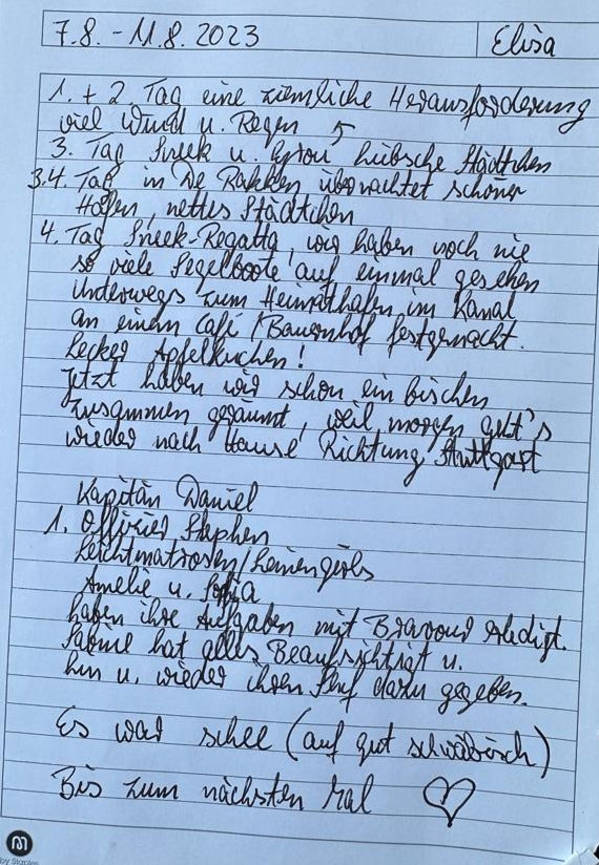 7.8. - 11.8. 2023 Elisa
1. + 2. Tag eine ziemliche Herausforderung
viel Wind u. Regen
3. Tag Sneek u. hübsche Städtchen
3.4. Tag in De übernachtet schöner
Hafen, nettes Städtchen
4. Tag Sneek-Regatta, wir haben noch nie
so viele Segelboote auf einmal gesehen
Unterwegs zum Heimathafen im Kanal
an einem Café / Bauernhof festgemacht.
Lecker Apfelkuchen!
Jetzt haben wir schon ein bischen
zusammen geräumt, weil morgen geht's
wieder nach Hause Richtung Stuttgart
Kapitän Daniel
1. Offizier Stephen
Leichtmatrosen/Leinengirls
Amelie u. Sofia
haben ihre Aufgaben mit Bravour erledigt.
Sabine hat alles Beaufsichtigt u.
hin u. wieder ihren Senf dazu gegeben.
Es war schee (auf gut schwäbisch)
Bis zum nächsten Mal
by Staples